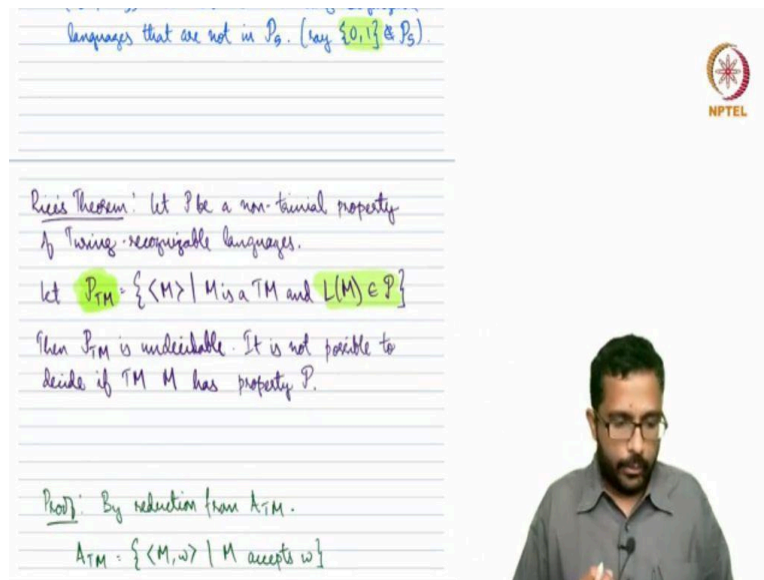 languages that are not in P₅. (say {0,1} ∉ P₅).
NPTEL
Rice's Theorem: Let P be a non-trivial property
of Turing-recognizable languages.
Let P_TM = {<M> | M is a TM and L(M) ∈ P}
Then P_TM is undecidable. It is not possible to
decide if TM M has property P.
Proof: By reduction from A_TM.
A_TM = {<M, w> | M accepts w}